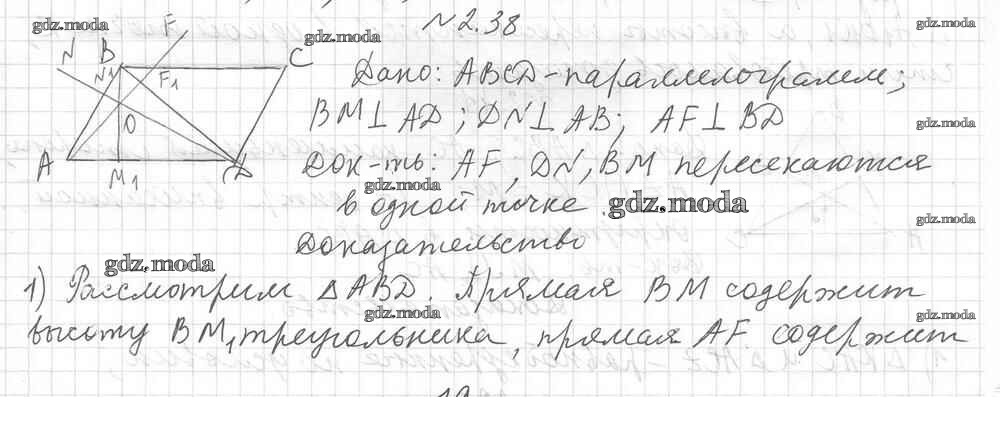 №2.38
Дано: ABCD - параллелограмм;
BM⊥AD; DN⊥AB; AF⊥BD
Док-ть: AF, DN, BM пересекаются
в одной точке.
Доказательство
1) Рассмотрим △ABD. Прямая BM содержит
высоту BM₁ треугольника, прямая AF содержит
N
B
F
C
N₁
F₁
O
A
M₁
D
gdz.moda
gdz.moda
gdz.moda
gdz.moda
gdz.moda
gdz.moda
gdz.moda
gdz.moda
gdz.moda
gdz.moda